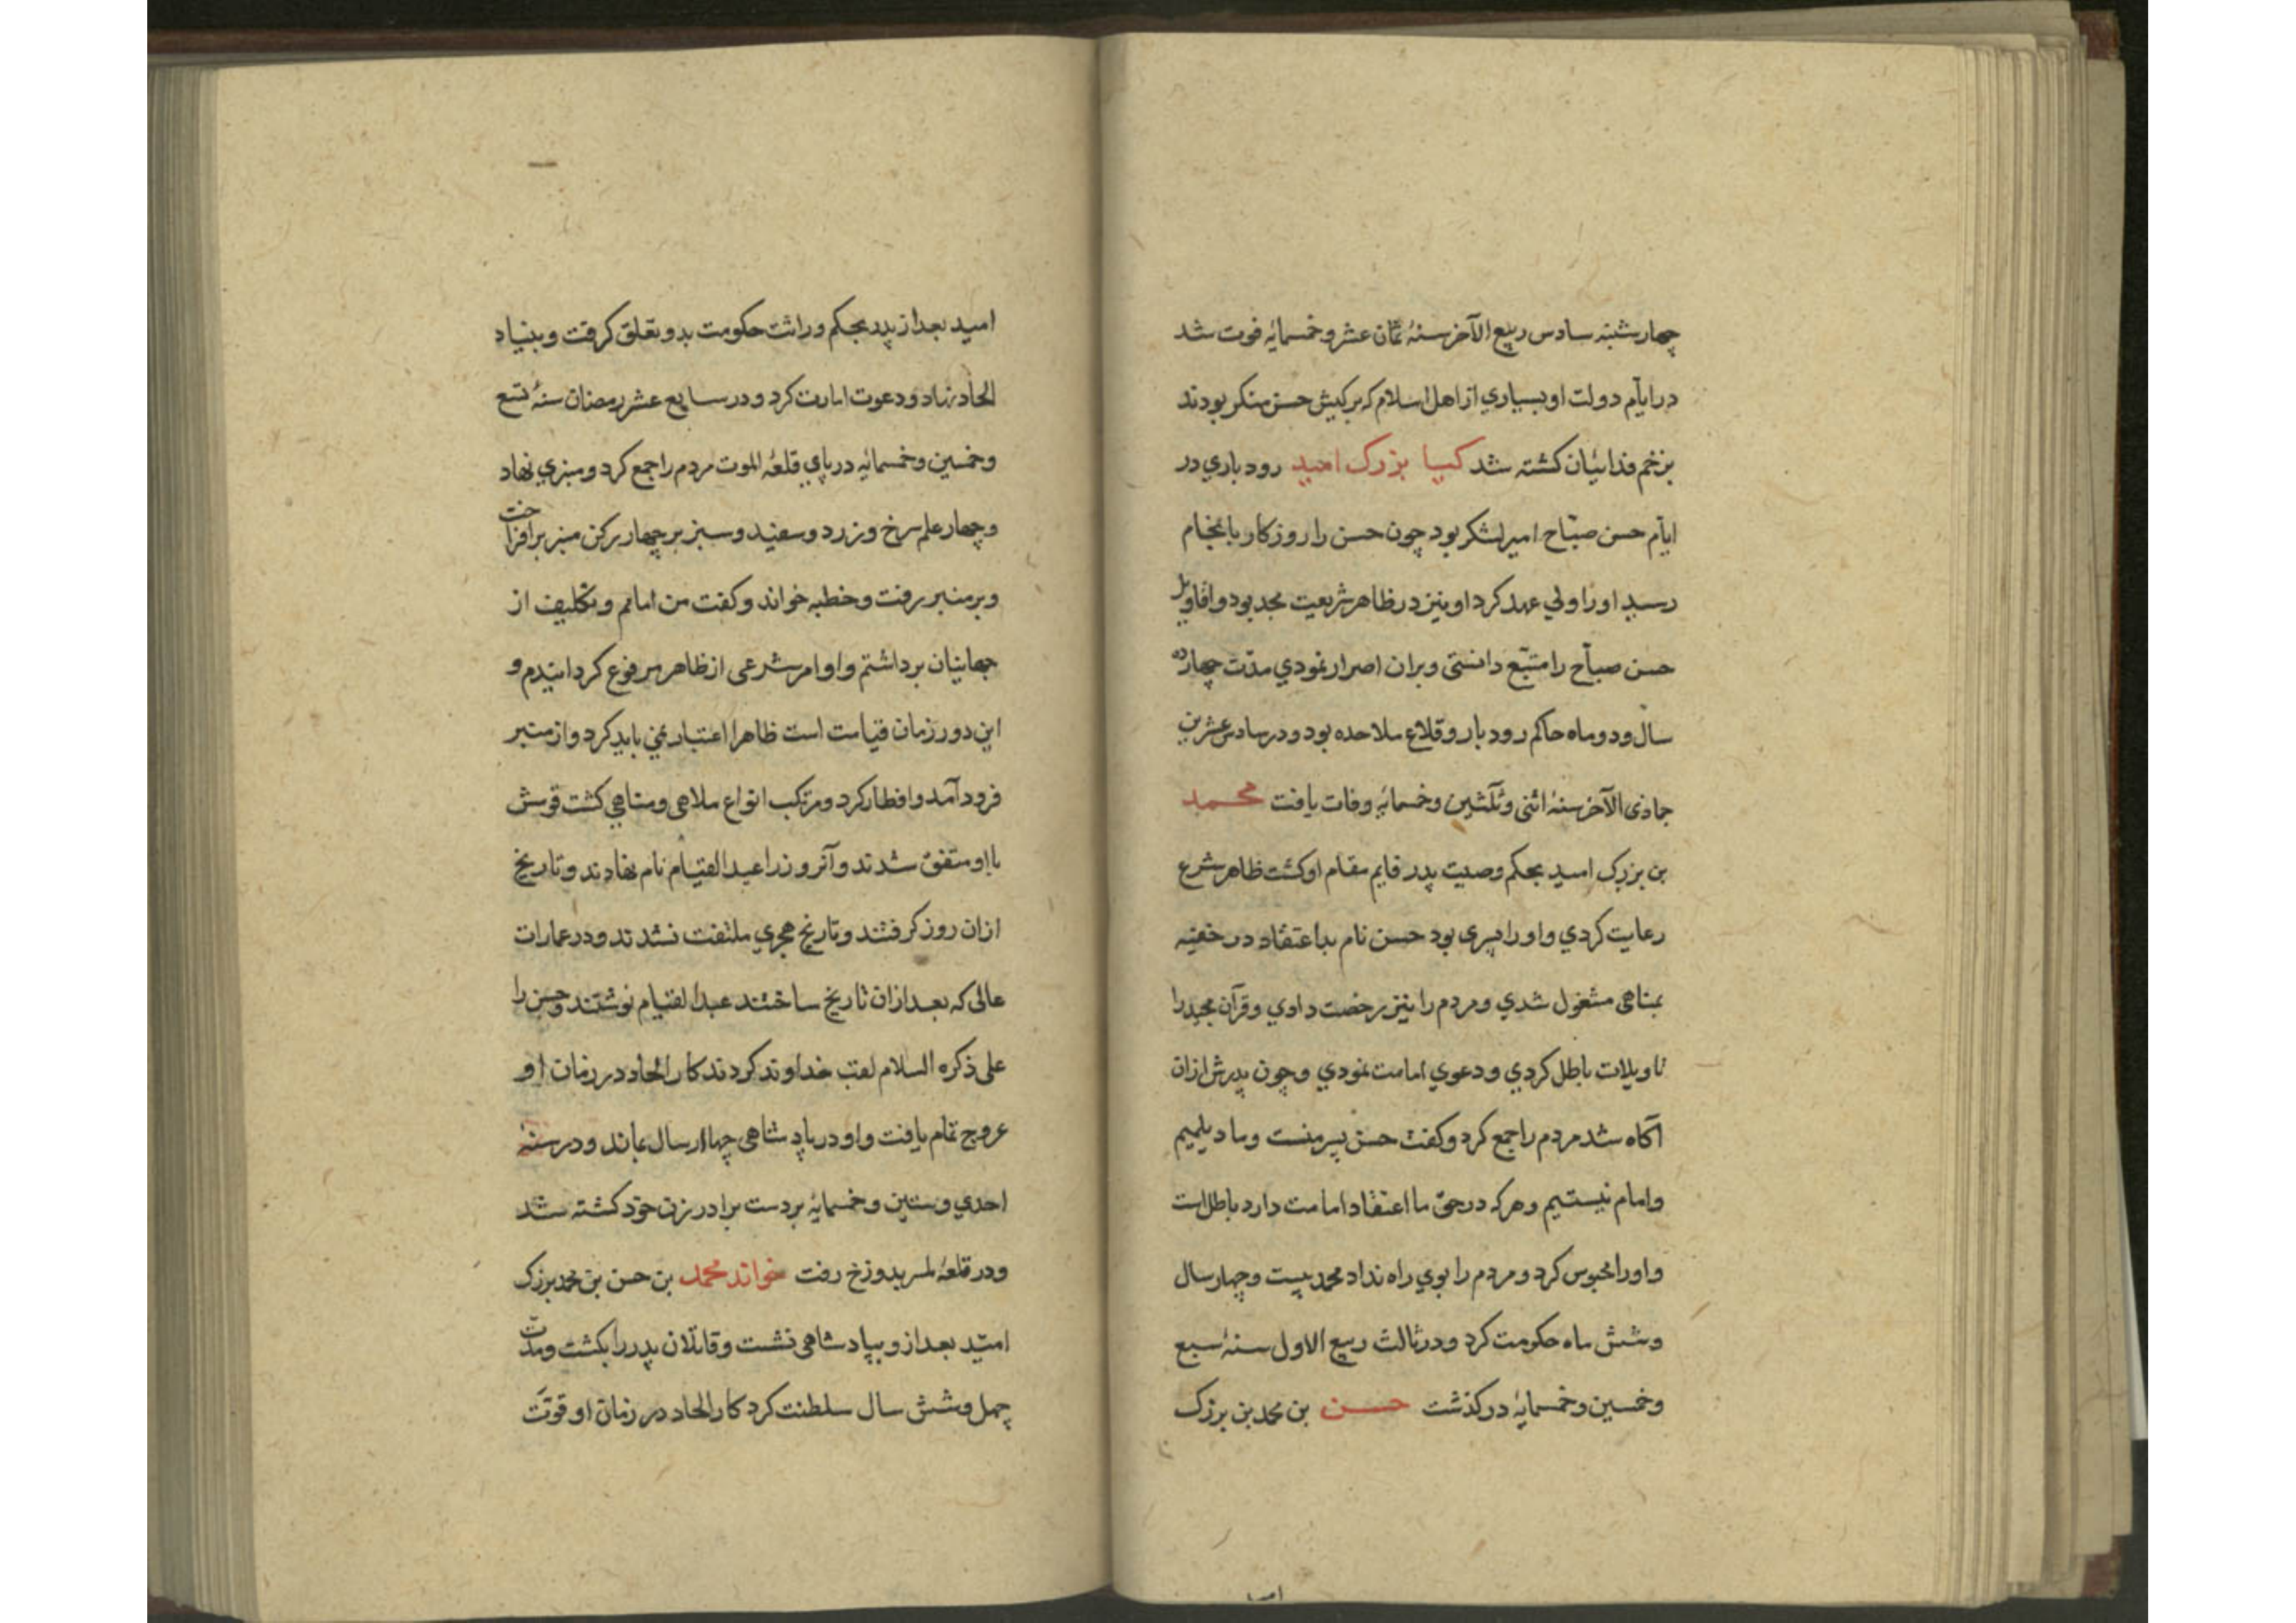 چهارشنبه سادس ربیع الآخر سنهٔ ثمان عشر و خمسمایهٔ فوت شد
در ایّام دولت او بسیاري از اهل اسلام که بر کیش حسن منکر بودند
بزخم فدائیان کشته شد کیا بزرک امید رودباري در
ایّام حسن صبّاح امیر لشکر بود چون حسن را روزکار بانجام
رسید او را ولي عهد کرد او نیز در ظاهر شریعت مجد بود و اقاویل
حسن صبّاح را متتبّع دانستی و بران اصرار نمودي مدّت چهارده
سال و دو ماه حاکم رودبار و قلاع ملاحده بود و در سادس عشرین
جمادی الآخر سنهٔ اثنی و ثلثین و خمسمایه وفات یافت محمد
بن بزرک امید بحکم وصیت پدر قایم مقام او کشت ظاهر شرع
رعایت کردي و او را پسری بود حسن نام بداعتقاد در خفیه
بمناهی مشغول شدي و مردم را نیز رخصت دادي و قرآن مجید را
تاویلات باطل کردي و دعوي امامت نمودي و چون پدرش ازان
آکاه شد مردم را جمع کرد و کفت حسن پسر منست و ما دیلمیم
و امام نیستیم و هرکه در حق ما اعتقاد امامت دارد باطل است
و او را محبوس کرد و مردم را بوي راه نداد محمد بیست و چهار سال
و شش ماه حکومت کرد و در ثالث ربیع الاول سنهٔ سبع
و خمسین و خمسمایهٔ درکذشت حسن بن محمد بن بزرک
امید بعد از پدر بحکم وراثت حکومت بدو تعلق کرفت و بنیاد
الحاد نهاد و دعوت امارت کرد و در سابع عشر رمضان سنهٔ تسع
و خمسین و خمسمایه در پاي قلعهٔ الموت مردم را جمع کرد و منبري نهاد
و چهار علم سرخ و زرد و سفید و سبز بر چهار رکن منبر برافراخت
و بر منبر رفت و خطبه خواند و کفت من امامم و تکلیف از
جهانیان برداشتم و اوامر شرعی از ظاهر مرفوع کردانیدم و
این دور زمان قیامت است ظاهر را اعتبار نمي باید کرد و از منبر
فرود آمد و افطار کرد و مرتکب انواع ملاهی و مناهي کشت قومش
با او متفق شدند و آنروز را عید القیام نام نهادند و تاریخ
ازان روز کرفتند و تاریخ هجري ملتفت نشدند و در عمارات
عالی که بعد ازان تاریخ ساختند عید القیام نوشتند و حسن را
علی ذکره السلام لقب خداوند کردند کار الحاد در زمان او
عروج تمام یافت و او در پادشاهی چهار سال بماند و در سنهٔ
احدي و ستین و خمسمایهٔ بر دست برادر زن خود کشته شد
و در قلعهٔ لمسر بدوزخ رفت خواند محمد بن حسن بن محمد بزرک
امیّد بعد ازو بپادشاهی نشست و قاتلان پدر را بکشت و مدّت
چهل و شش سال سلطنت کرد کار الحاد در زمان او قوّت